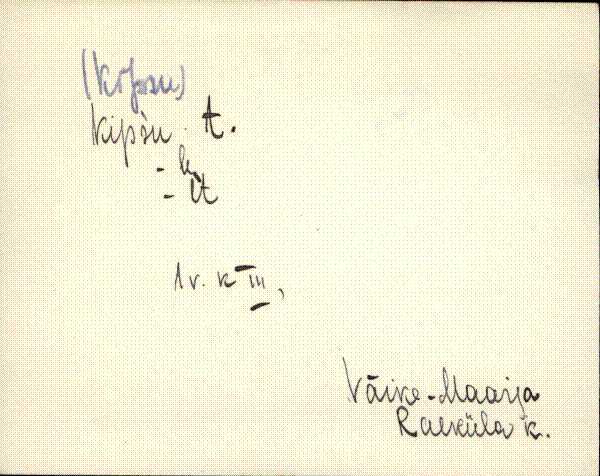 (Kipsu)
Kipsu t.
- k
- lt
1 v. K III,
Väike-Maarja
Raeküla k.